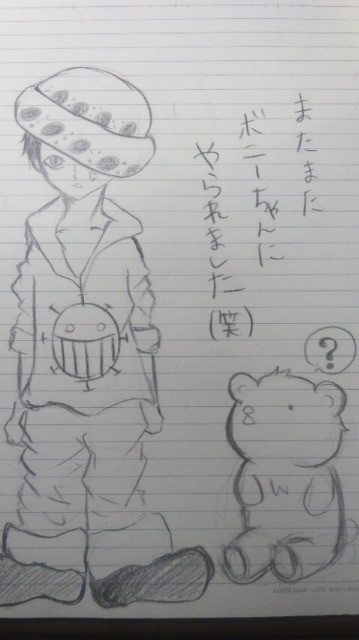 またまた
ボニーちゃんに
やられました
(笑)
?
W